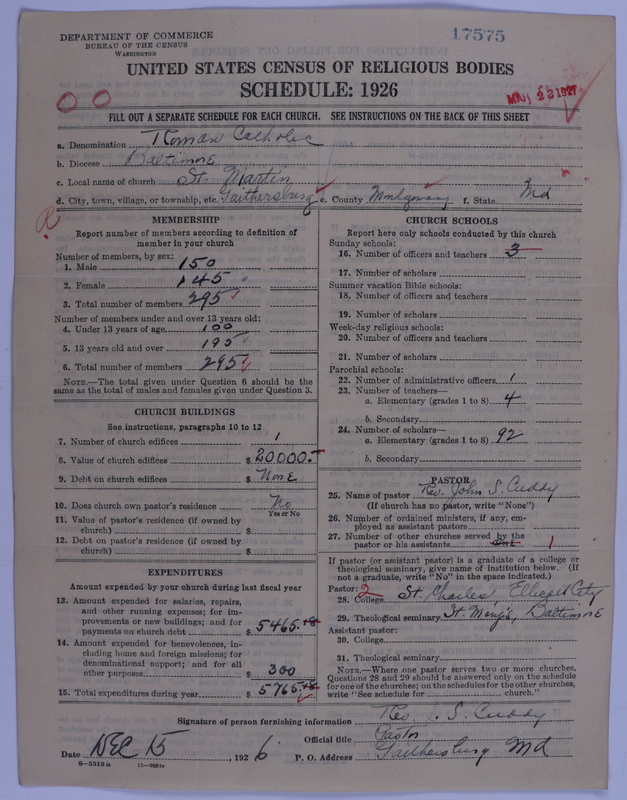 DEPARTMENT OF COMMERCE
BUREAU OF THE CENSUS
WASHINGTON
17575
UNITED STATES CENSUS OF RELIGIOUS BODIES
SCHEDULE: 1926
MAR 23 1927
FILL OUT A SEPARATE SCHEDULE FOR EACH CHURCH. SEE INSTRUCTIONS ON THE BACK OF THIS SHEET
a. Denomination Roman Catholic
b. Diocese Baltimore
c. Local name of church St. Martin
d. City, town, village, or township, etc. Gaithersburg e. County Montgomery f. State Md
MEMBERSHIP
Report number of members according to definition of
member in your church
Number of members, by sex:
1. Male 150
2. Female 145
3. Total number of members 295
Number of members under and over 13 years old:
4. Under 13 years of age 100
5. 13 years old and over 195
6. Total number of members 295
NOTE.—The total given under Question 6 should be
same as the total of males and females given under Question 3.
CHURCH BUILDINGS
See instructions, paragraphs 10 to 12
7. Number of church edifices 1
8. Value of church edifices $ 20000.-
9. Debt on church edifices $ None
10. Does church own pastor's residence No
Yes or No
11. Value of pastor's residence (if owned by
church) $
12. Debt on pastor's residence (if owned by
church) $
EXPENDITURES
Amount expended by your church during last fiscal year
13. Amount expended for salaries, repairs,
and other running expenses; for im-
provements or new buildings; and for
payments on church debt $ 5465.
14. Amount expended for benevolences, in-
cluding home and foreign missions; for
denominational support; and for all
other purposes $ 300
15. Total expenditures during year $ 5765.
CHURCH SCHOOLS
Report here only schools conducted by this church
Sunday schools:
16. Number of officers and teachers 3
17. Number of scholars
Summer vacation Bible schools:
18. Number of officers and teachers
19. Number of scholars
Week-day religious schools:
20. Number of officers and teachers
21. Number of scholars
Parochial schools:
22. Number of administrative officers 1
23. Number of teachers—
a. Elementary (grades 1 to 8) 4
b. Secondary
24. Number of scholars—
a. Elementary (grades 1 to 8) 92
b. Secondary
PASTOR
25. Name of pastor Rev. John S. Cuddy
(If church has no pastor, write "None")
26. Number of ordained ministers, if any, em-
ployed as assistant pastors
27. Number of other churches served by the
pastor or his assistants one 1
If pastor (or assistant pastor) is a graduate of a college or
theological seminary, give name of institution below. (If
not a graduate, write "No" in the space indicated.)
Pastor: 2
28. College St. Charles, Ellicott City
29. Theological seminary St. Mary's, Baltimore
Assistant pastor:
30. College
31. Theological seminary
NOTE.—Where one pastor serves two or more churches,
Questions 28 and 29 should be answered only on the schedule
for one of the churches; on the schedules for the other churches,
write "See schedule for church."
Signature of person furnishing information Rev. J. S. Cuddy
Official title Pastor
Date DEC 15, 1926 P. O. Address Gaithersburg Md
8—5318a 11—9264a